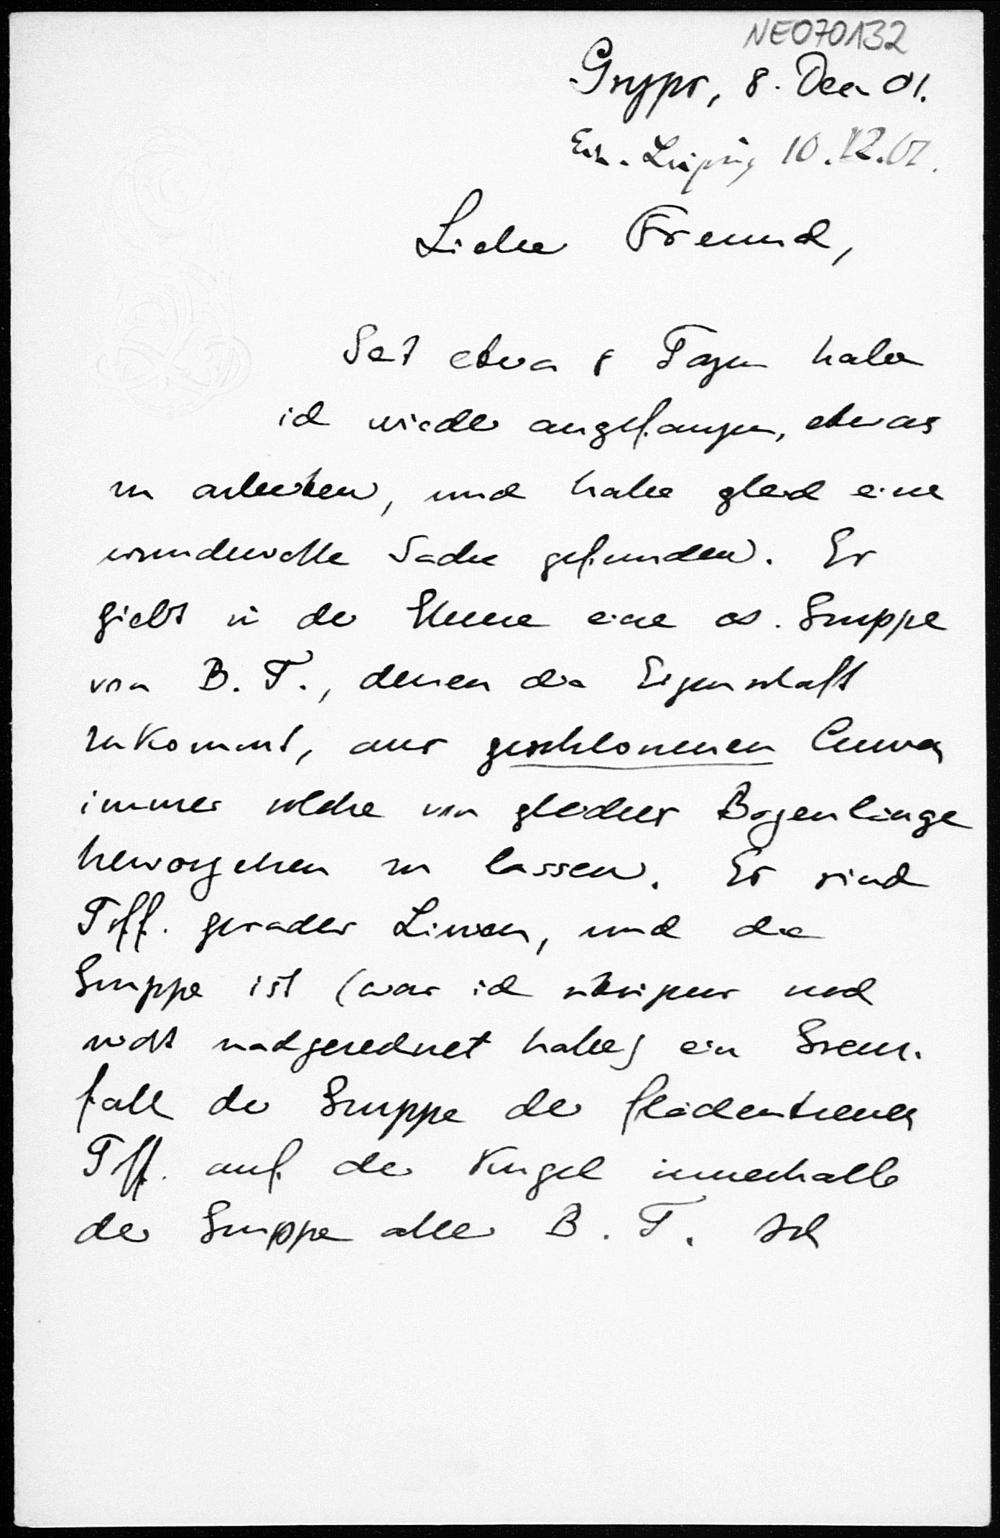 NE070132
Gryps, 8. Dec 01.
Erh. Leipzig 10.12.01.
Lieber Freund,
Seit etwa 8 Tagen habe
ich wieder angefangen, etwas
zu arbeiten, und habe gleich eine
wundervolle Sache gefunden. Es
giebt in der Ebene eine Gruppe
von B. T., denen die Eigenschaft
zukommt, aus geschlossenen Curven
immer solche von gleicher Bogenlänge
hervorgehen zu lassen. Es sind
Tff. gerader Linien, und die
Gruppe ist (was ich übrigens noch
nicht nachgerechnet habe) ein Grenz-
fall der Gruppe der flächentreuen
Tff. auf der Kugel innerhalb
der Gruppe aller B. T. Ich